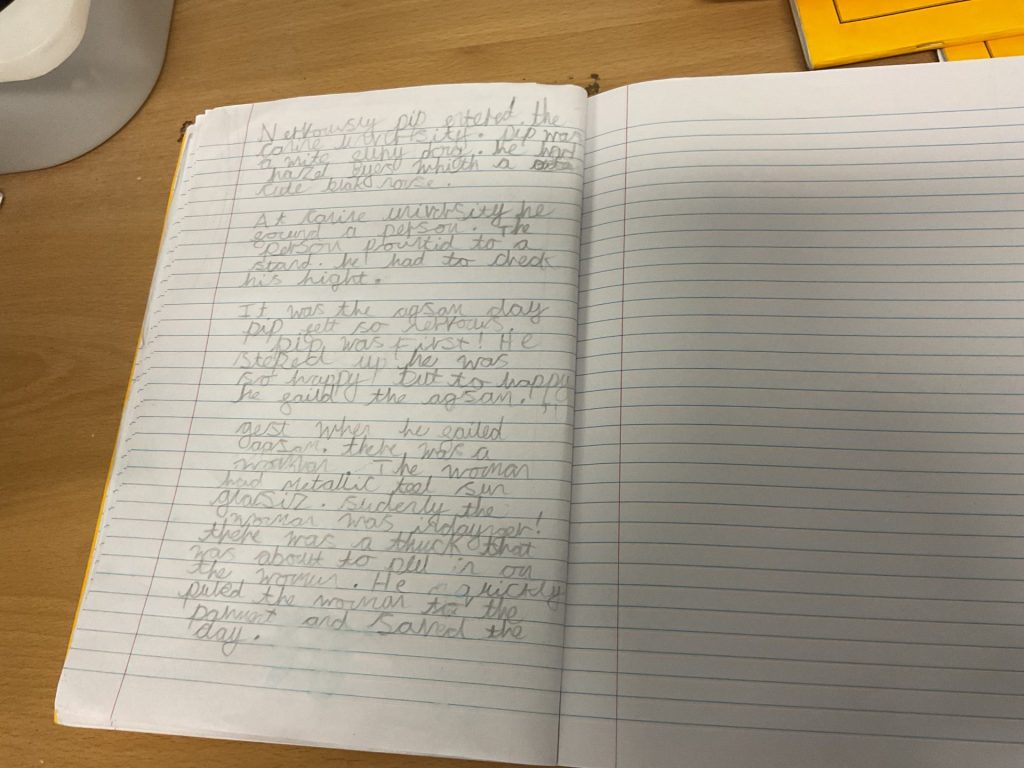 Nervously pip etered the
canine univrsity. pip was
a wite fluhy dog. he had
hazel eyes whith a
cute blak nose.
At canine univrsity he
found a person. The
person pointid to a
stand. he had to check
his hight.
It was the agsam day
pip felt so nervous.
pip was First! He
steped up he was
so happy! but to happy
he faild the agsam.
gest when he failed
agsam. there was a
woman. The woman
had metallic teel sun
glassiz. Sudenly the
woman was indaynger!
there was a thuck that
was about to pll in on
the woman. He quickly
puled the woman to the
pamunt and Saved the
day.